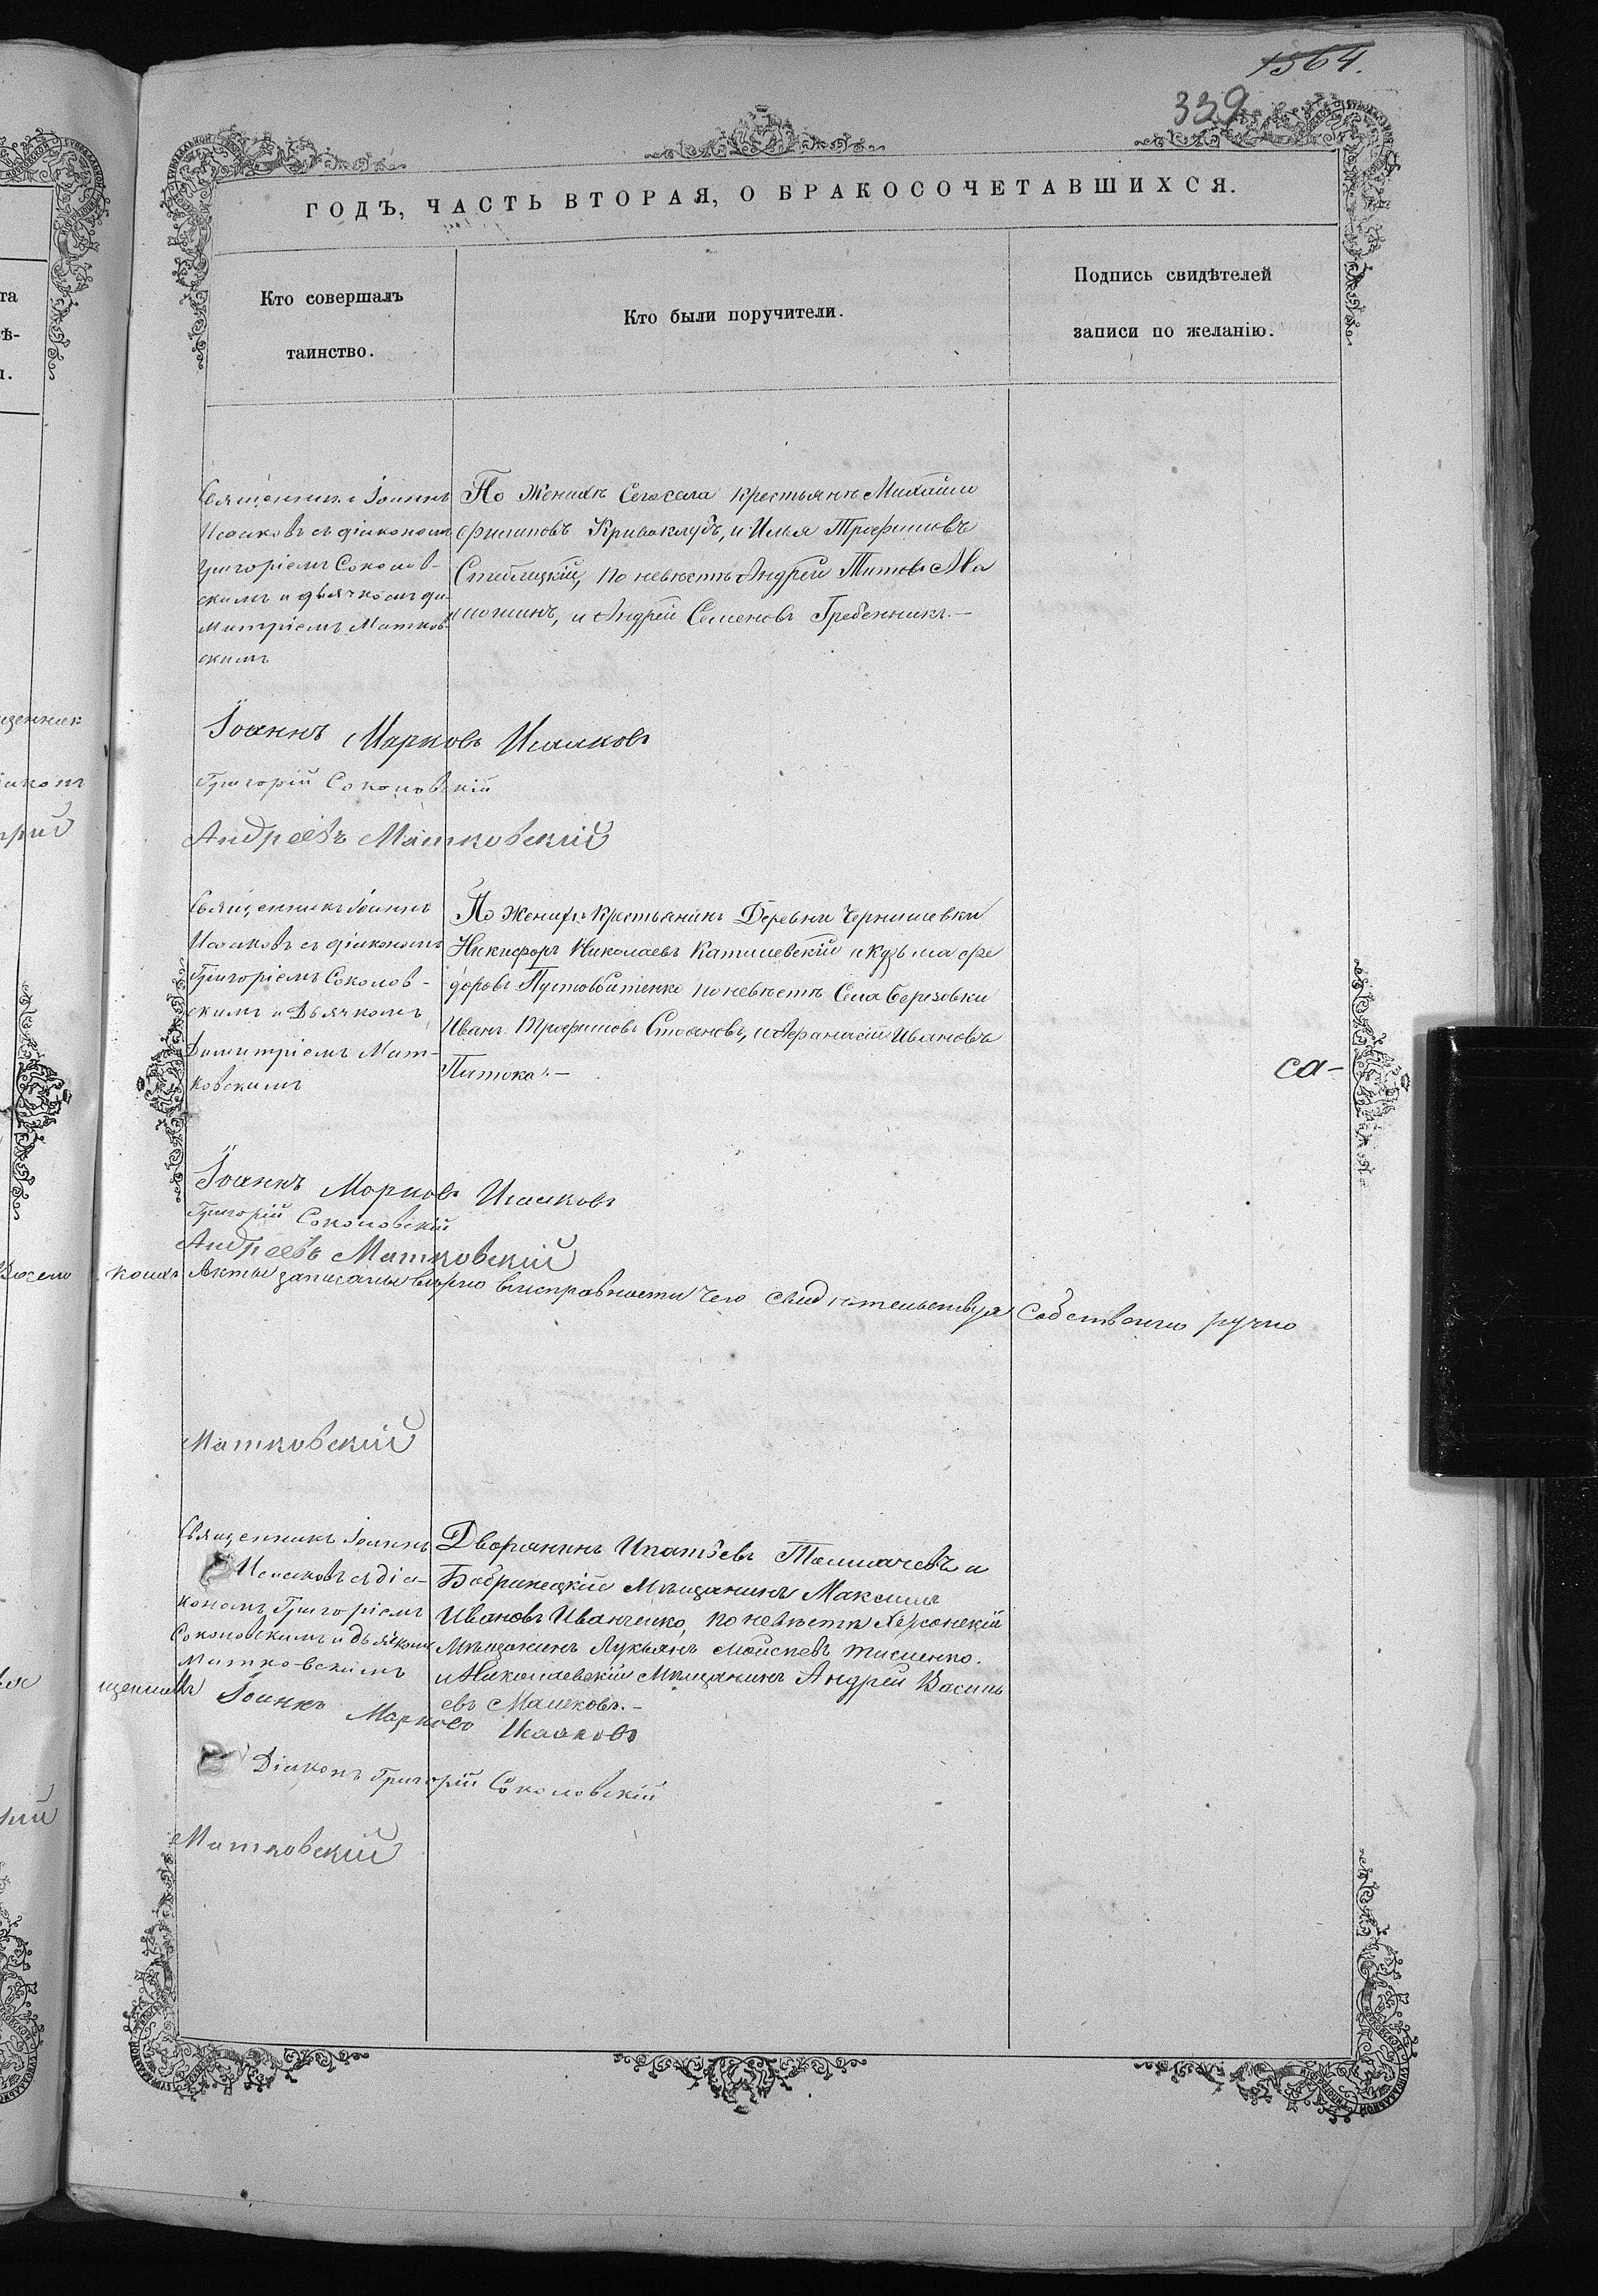 1564.
339
ГОДЪ, ЧАСТЬ ВТОРАЯ, О БРАКОСОЧЕТАВШИХСЯ.
Кто совершалъ
таинство.
Кто были поручители.
Подпись свидѣтелей
записи по желанію.
Священникъ Іоаннъ
Исааковъ съ діакономъ
Григоріемъ Соколов-
скимъ и дьячкомъ Ди-
митріемъ Матков-
скимъ
По женихѣ Сего села крестьяне Михаилъ
Филиповъ Кривоклубъ, и Илья Трофимовъ
по невѣстѣ Андрей Титовъ
и Андрей Семеновъ Гребенникъ. —
Іоаннъ Марковъ Исааковъ
Григорій Соколовскій
Андреевъ Матковскій
Священникъ Іоаннъ
Исааковъ съ діакономъ
Григоріемъ Соколов-
скимъ и Дьячкомъ
Димитріемъ Мат-
ковскимъ
По женихѣ Крестьянинъ Деревни Чернишевки
Никифоръ Николаевъ Катишевскій и Кузьма Фе
доровъ Пустовойтенко по невѣстѣ Села Березовки
Иванъ Трофимовъ Стояновъ, и Афанасій Ивановъ
Питока. —
са-
Іоаннъ Марковъ Исааковъ
Григорій Соколовскій
Андреевъ Матковскій
Акты записаны вѣрно въ исправности чего свидѣтельствуя Собственно ручно
Матковскій
Священникъ Іоаннъ
Исааковъ съ діа-
кономъ Григоріемъ
Соколовскимъ и дьячкомъ
Матковскимъ
Дворянинъ Ипатіевъ Толмачевъ и
Бобринецкій Мѣщанинъ Максимъ
Ивановъ Иванченко, по невѣстѣ Херсонскій
Мѣщанинъ Лукьянъ Мойсеевъ Тисленко.
и Николаевскій Мѣщанинъ Андрей Василь
евъ Машковъ. —
Іоаннъ Марковъ Исааковъ
Діаконъ Григорій Соколовскій
Матковскій